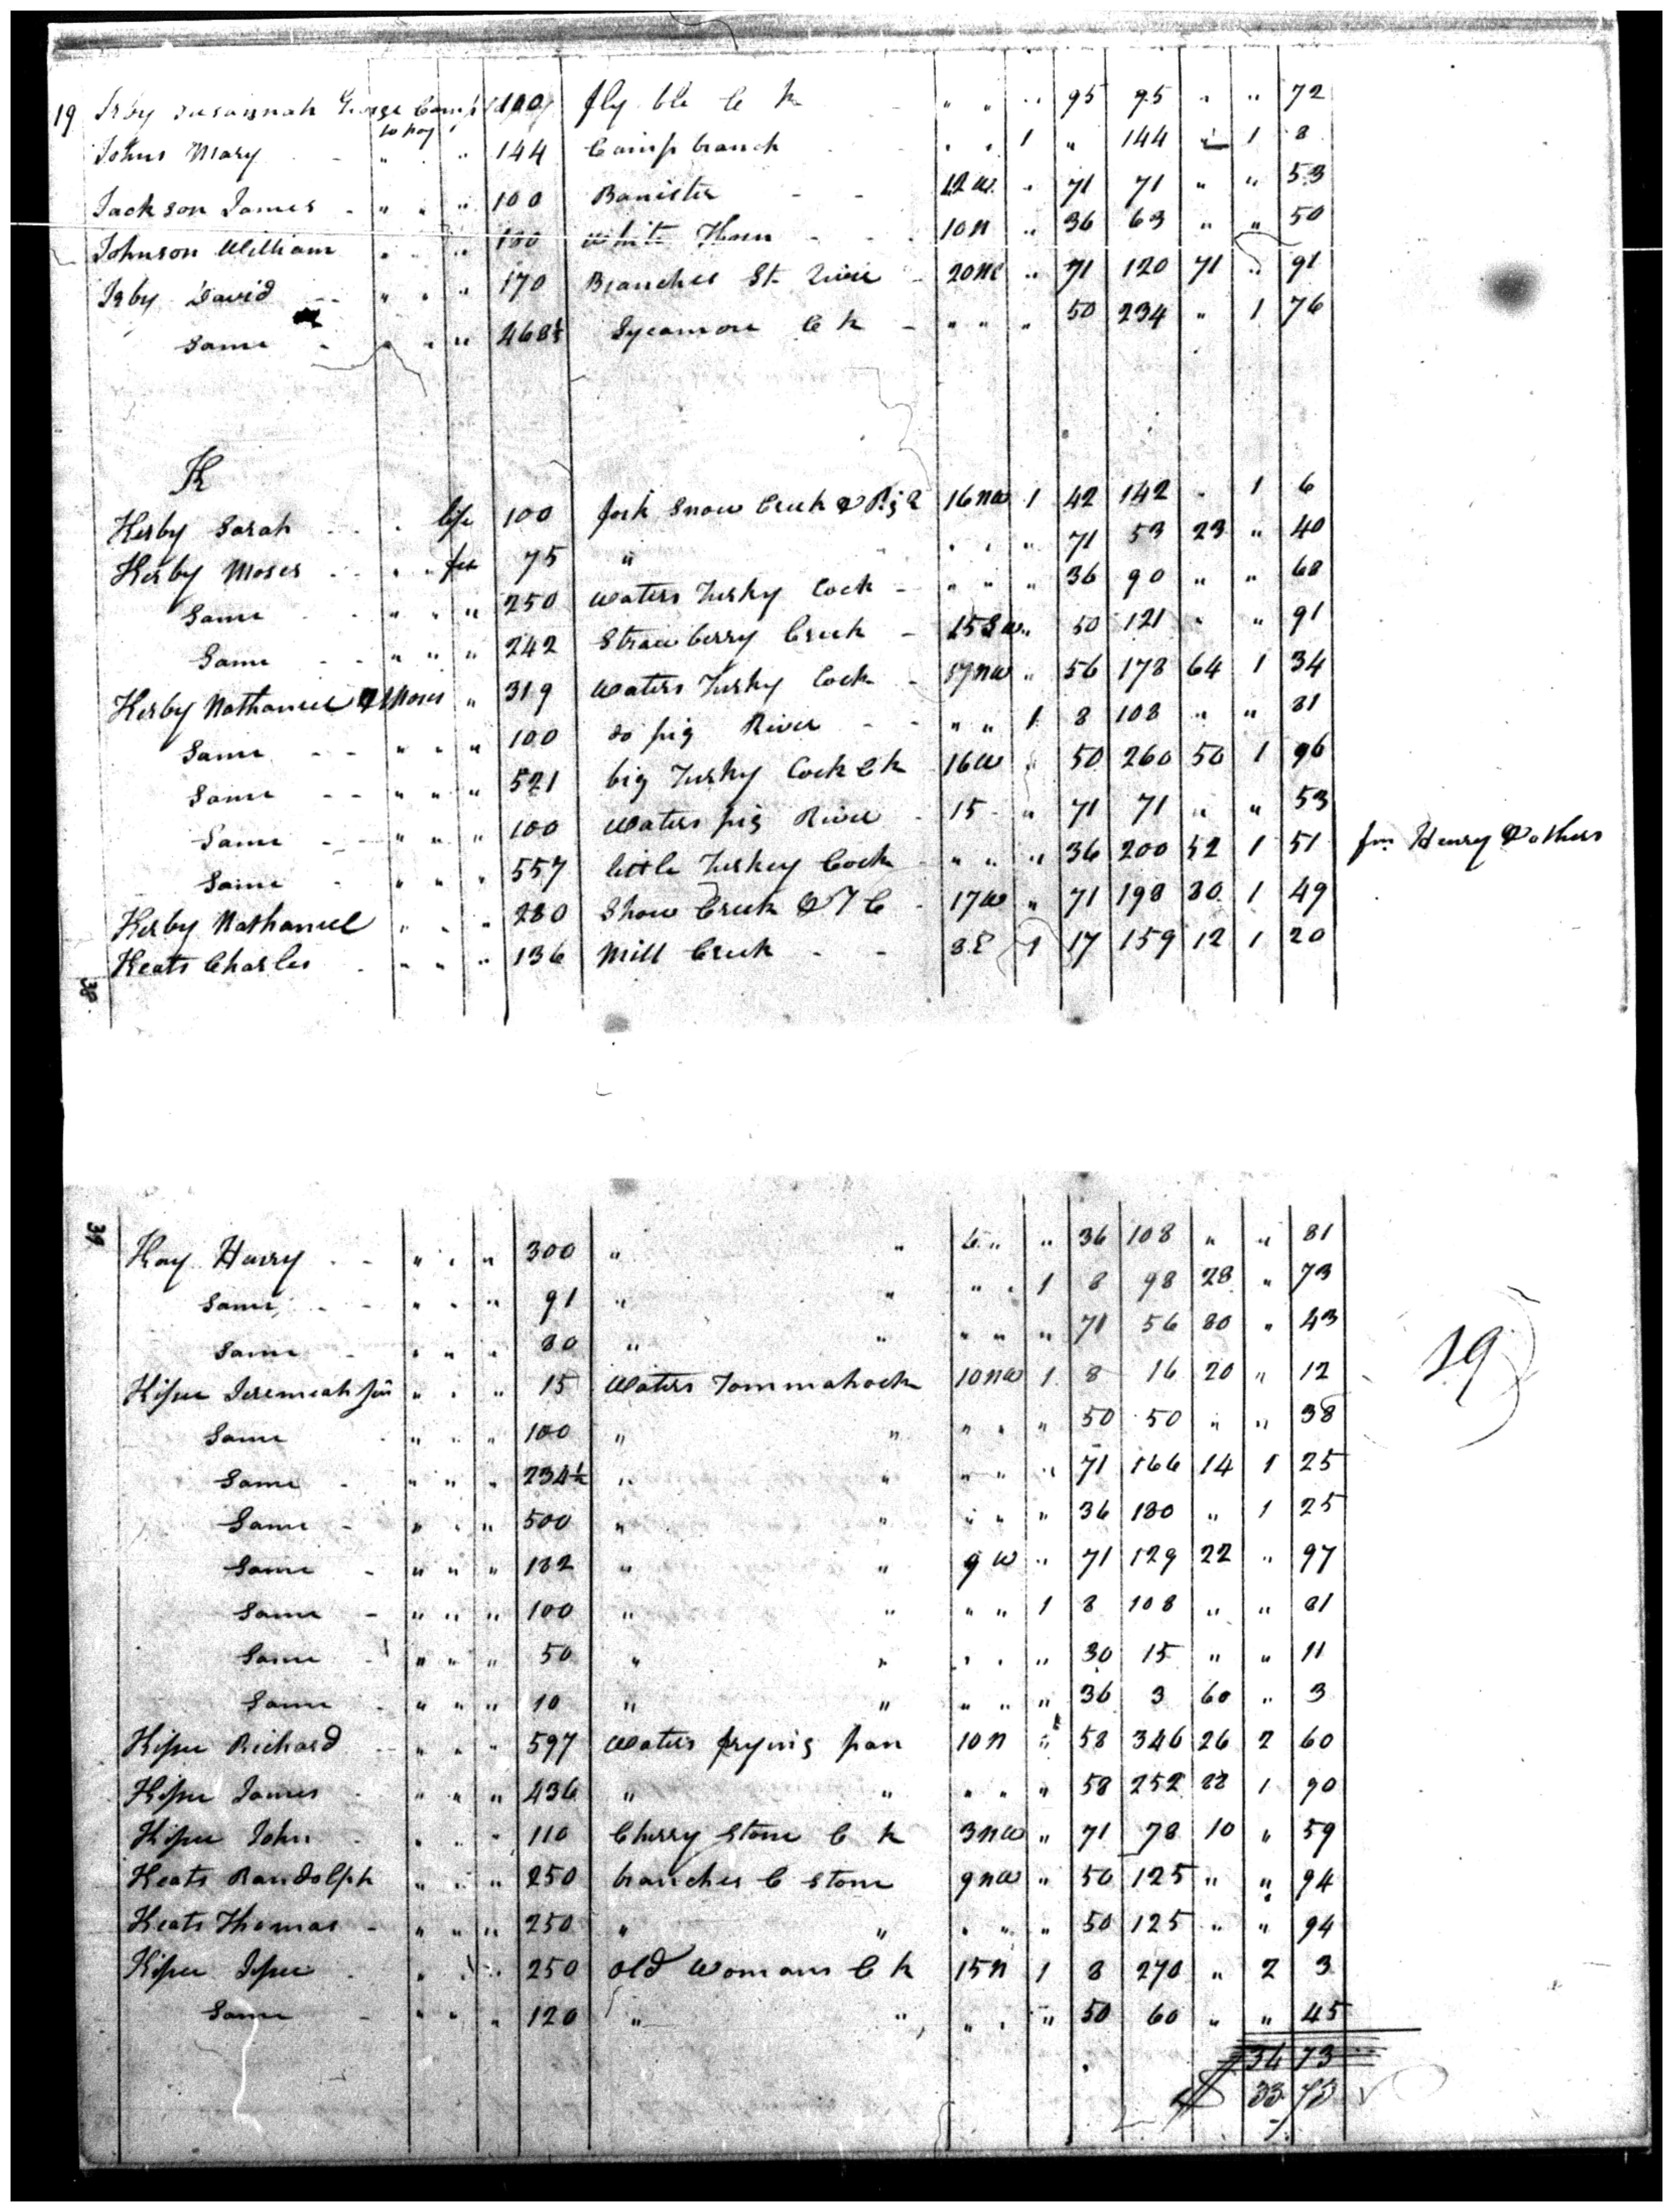 19 Irby Susannah George Camp 100 fly blo C k " " " 95 95 " " 72
to pay
Johns Mary " " 144 Camp branch " " 1 " 144 " 1 8
Jackson James " " " 100 Banister 12 W " 71 71 " " 53
Johnson William " " " White Thorn 10 N " 36 63 " " 50
Irby David " " " 170 Branches St. River 20 NE " 71 120 71 " 91
Same " " " 468½ Sycamore C k " " " 50 234 " 1 76
K
Kerby Sarah " life 100 fork Snow Creek & Pig R 16 NW 1 42 142 " 1 6
Kerby Moses " " fee 75 " " " " 71 53 23 " 40
Same " " " 250 Waters Turky Cock " " " 36 90 " " 68
Same " " " 242 Strawberry Creek 15 SW " 50 121 " " 91
Kerby Nathaniel & Moses " 319 Waters Turky Cock 17 NW " 56 178 64 1 34
Same " " " 100 do pig River " " 1 8 108 " " 81
Same " " " 521 big Turky Cock C k 16 W " 50 260 50 1 96
Same " " " 100 Waters pig River 15 " 71 71 " " 53
Same " " " 557 little Turkey Cock " " " 36 200 52 1 51 fm Henry & others
Kerby Nathaniel " " " 280 Snow Creek & T C 17 W " 71 198 80 1 49
Keats Charles " " " 136 Mill Creek 8 E 1 17 159 12 1 20
38
39
Kay Harry " " " 300 " " 6 " " 36 108 " " 81
Same " " " 91 " " " " 1 8 98 28 " 73
Same " " " 80 " " " " " 71 56 80 " 43
19
Kesee Jeremiah Jun " " " 15 Waters Tommahock 10 NW 1 8 16 20 " 12
Same " " " 100 " " " " " 50 50 " " 38
Same " " " 234½ " " " " " 71 166 14 1 25
Same " " " 500 " " " " " 36 180 " 1 25
Same " " " 182 " " 9 W " 71 129 22 " 97
Same " " " 100 " " " " 1 8 108 " " 81
Same " " " 50 " " " " " 30 15 " " 11
Same " " " 10 " " " " " 36 3 60 " 3
Kesee Richard " " " 597 Waters frying pan 10 N " 58 346 26 2 60
Kesee James " " " 436 " " " " " 58 252 88 1 90
Kesee John " " " 110 Cherry Stone C k 3 NW " 71 78 10 " 59
Keats Randolph " " " 250 branches C Stone 9 NW " 50 125 " " 94
Keats Thomas " " " 250 " " " " " 50 125 " " 94
Kesee Jesee " " " 250 Old Womans C k 15 N 1 8 270 " 2 3
Same " " " 120 " " " " " 50 60 " " 45
34 73
$ 33 73